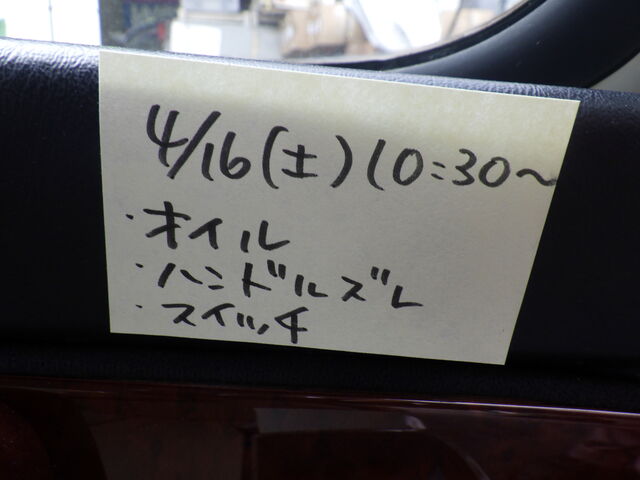 4/16(土)10:30~
・オイル
・ハンドルズレ
・スイッチ